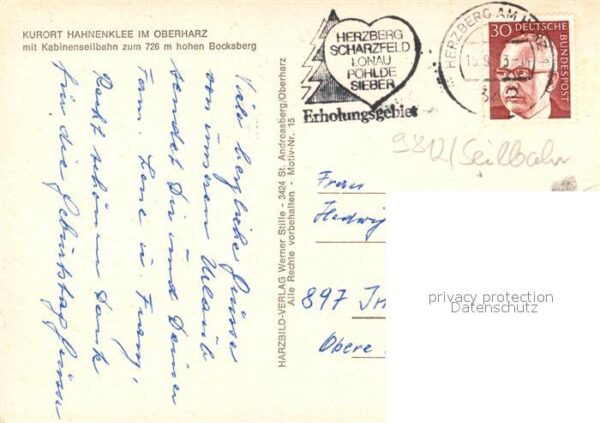 KURORT HAHNENKLEE IM OBERHARZ
mit Kabinenseilbahn zum 726 m hohen Bocksberg
Viele herzliche Grüsse
von unserem Urlaub
sendet Dir und Deiner
Fam. Lene u. Franz,
Recht schönen Dank
für die Geburtstagsgrüsse
HARZBILD-VERLAG Werner Stille - 3424 St. Andreasberg/Oberharz
Alle Rechte vorbehalten - Motiv-Nr. 15
HERZBERG
SCHARZFELD
LONAU
PÖHLDE
SIEBER
Erholungsgebiet
HERZBERG AM HARZ
30 DEUTSCHE
BUNDESPOST
9812/Seilbahn
Frau
Hedwig
897
Obere
privacy protection
Datenschutz